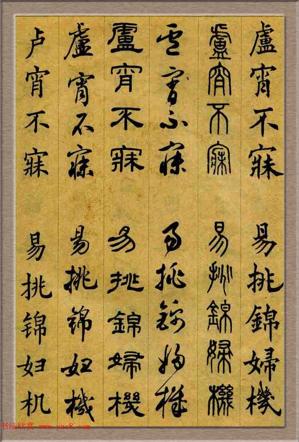 盧宵不寐 易挑錦婦機
盧宵不寐 易挑錦婦機
盧宵不寐 易挑錦婦機
盧宵不寐 易挑錦婦機
盧宵不寐 易挑錦妇機
卢宵不寐 易挑锦妇机